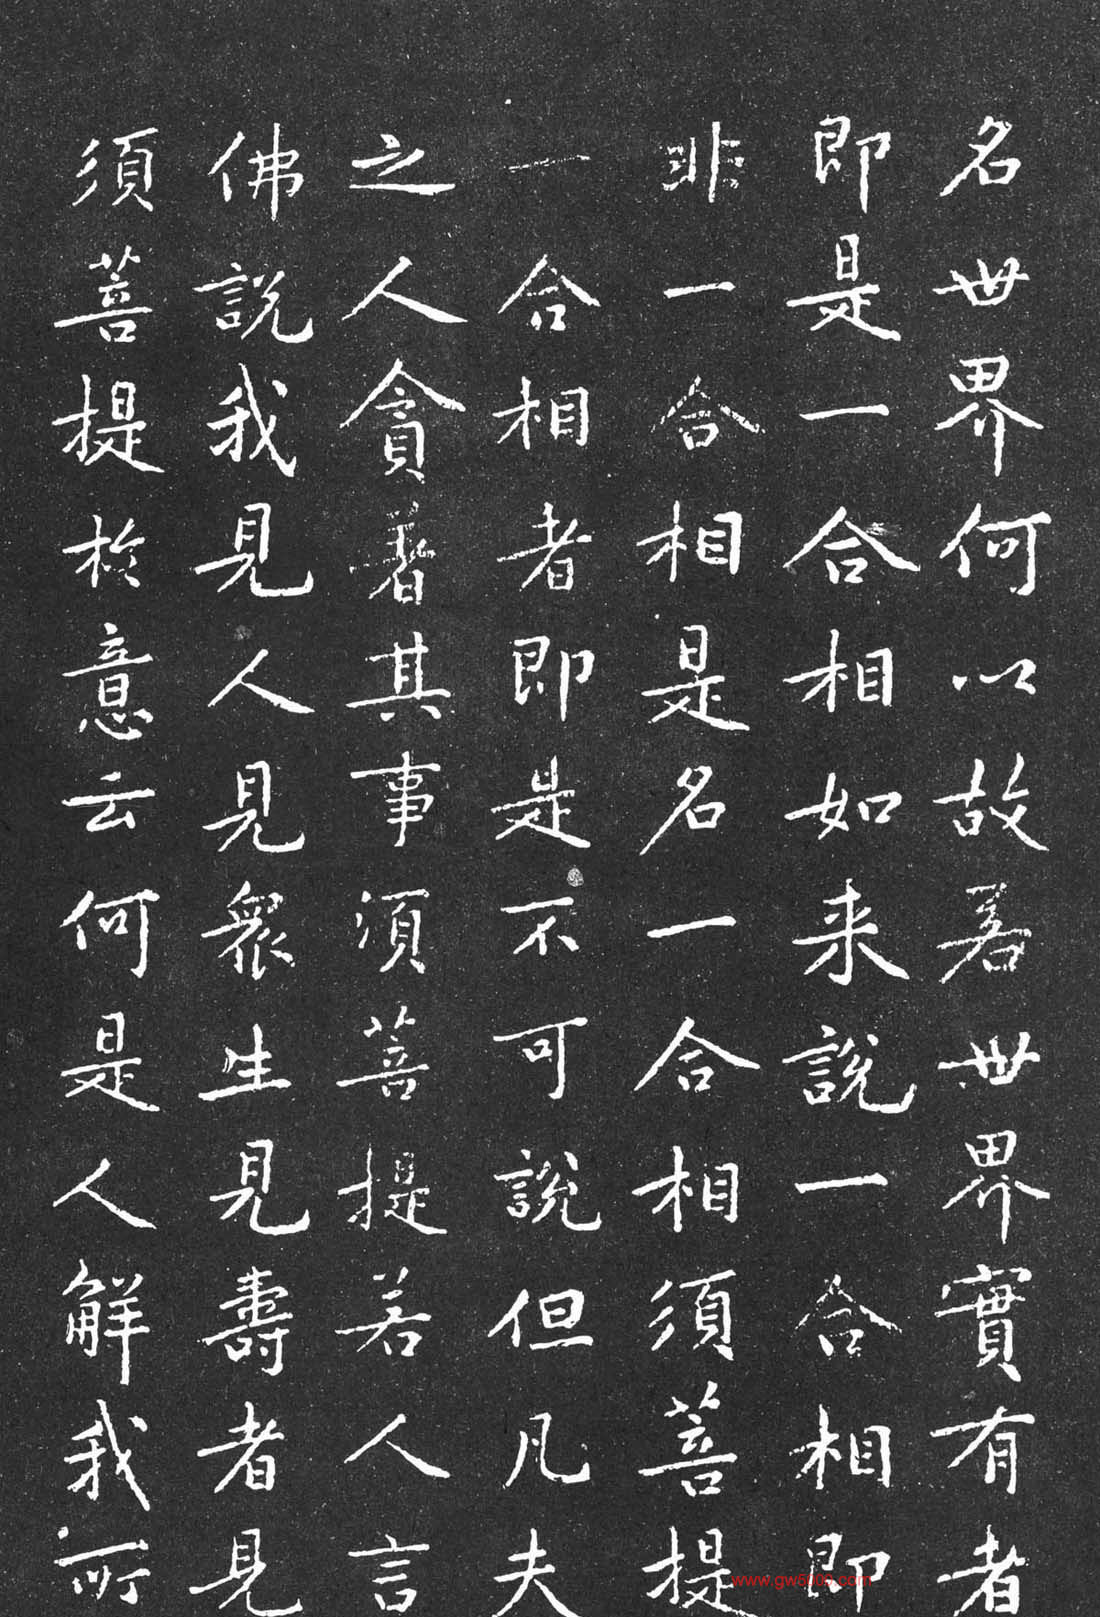 名世界何以故若世界實有者
即是一合相如来説一合相即
非一合相是名一合相須菩提
一合相者即是不可説但凡夫
之人貪著其事須菩提若人言
佛説我見人見衆生見壽者見
須菩提於意云何是人解我所
www.gw5000.com